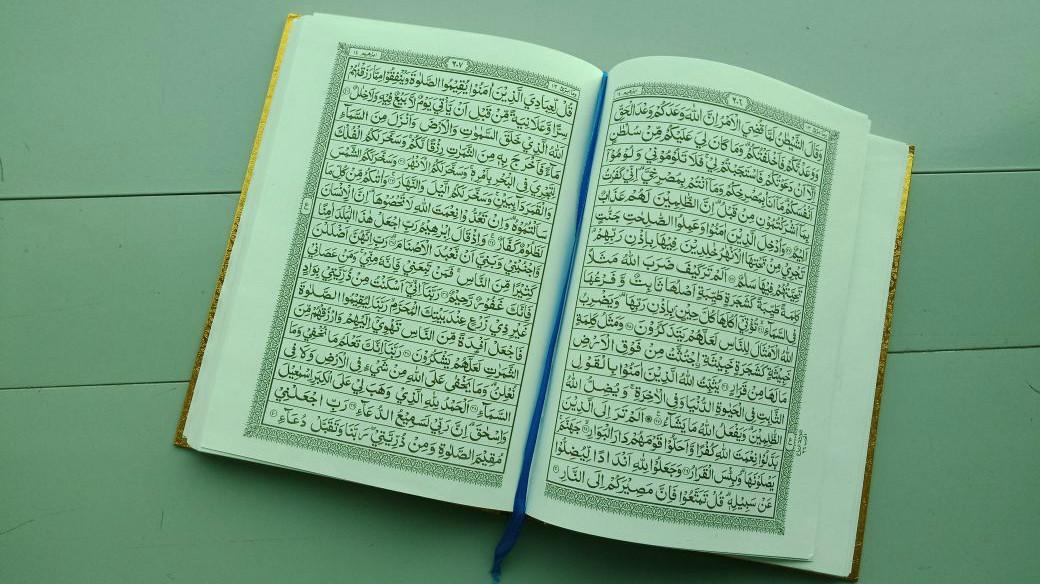 ٢٠٦
وَقَالَ الشَّيْطٰنُ لَمَّا قُضِيَ الْاَمْرُ اِنَّ اللّٰهَ وَعَدَكُمْ وَعْدَ الْحَقِّ
وَوَعَدْتُّكُمْ فَاَخْلَفْتُكُمْ ۗ وَمَا كَانَ لِيَ عَلَيْكُمْ مِّنْ سُلْطٰنٍ
اِلَّآ اَنْ دَعَوْتُكُمْ فَاسْتَجَبْتُمْ لِيْ ۚ فَلَا تَلُوْمُوْنِيْ وَلُوْمُوْٓا
اَنْفُسَكُمْ ۗ مَآ اَنَا۠ بِمُصْرِخِكُمْ وَمَآ اَنْتُمْ بِمُصْرِخِيَّ ۗ اِنِّيْ كَفَرْتُ
بِمَآ اَشْرَكْتُمُوْنِ مِنْ قَبْلُ ۗ اِنَّ الظّٰلِمِيْنَ لَهُمْ عَذَابٌ
اَلِيْمٌ ۝٢٢ وَاُدْخِلَ الَّذِيْنَ اٰمَنُوْا وَعَمِلُوا الصّٰلِحٰتِ جَنّٰتٍ
تَجْرِيْ مِنْ تَحْتِهَا الْاَنْهٰرُ خٰلِدِيْنَ فِيْهَا بِاِذْنِ رَبِّهِمْ ۗ
تَحِيَّتُهُمْ فِيْهَا سَلٰمٌ ۝٢٣ اَلَمْ تَرَ كَيْفَ ضَرَبَ اللّٰهُ مَثَلًا
كَلِمَةً طَيِّبَةً كَشَجَرَةٍ طَيِّبَةٍ اَصْلُهَا ثَابِتٌ وَّفَرْعُهَا
فِى السَّمَآءِ ۝٢٤ تُؤْتِيْٓ اُكُلَهَا كُلَّ حِيْنٍۢ بِاِذْنِ رَبِّهَا ۗ وَيَضْرِبُ
اللّٰهُ الْاَمْثَالَ لِلنَّاسِ لَعَلَّهُمْ يَتَذَكَّرُوْنَ ۝٢٥ وَمَثَلُ كَلِمَةٍ
خَبِيْثَةٍ كَشَجَرَةٍ خَبِيْثَةِ ِۨاجْتُثَّتْ مِنْ فَوْقِ الْاَرْضِ
مَا لَهَا مِنْ قَرَارٍ ۝٢٦ يُثَبِّتُ اللّٰهُ الَّذِيْنَ اٰمَنُوْا بِالْقَوْلِ
الثَّابِتِ فِى الْحَيٰوةِ الدُّنْيَا وَفِى الْاٰخِرَةِ ۚ وَيُضِلُّ اللّٰهُ
الظّٰلِمِيْنَ ۗ وَيَفْعَلُ اللّٰهُ مَا يَشَآءُ ۝٢٧ اَلَمْ تَرَ اِلَى الَّذِيْنَ
بَدَّلُوْا نِعْمَتَ اللّٰهِ كُفْرًا وَّاَحَلُّوْا قَوْمَهُمْ دَارَ الْبَوَارِ ۝٢٨ جَهَنَّمَ
يَصْلَوْنَهَا ۗ وَبِئْسَ الْقَرَارُ ۝٢٩ وَجَعَلُوْا لِلّٰهِ اَنْدَادًا لِّيُضِلُّوْا
عَنْ سَبِيْلِهٖ ۗ قُلْ تَمَتَّعُوْا فَاِنَّ مَصِيْرَكُمْ اِلَى النَّارِ ۝٣٠
ابرٰهيم ١٤
٢٠٧
قُلْ لِّعِبَادِيَ الَّذِيْنَ اٰمَنُوْا يُقِيْمُوا الصَّلٰوةَ وَيُنْفِقُوْا مِمَّا رَزَقْنٰهُمْ
سِرًّا وَّعَلَانِيَةً مِّنْ قَبْلِ اَنْ يَّأْتِيَ يَوْمٌ لَّا بَيْعٌ فِيْهِ وَلَا خِلٰلٌ ۝٣١
اَللّٰهُ الَّذِيْ خَلَقَ السَّمٰوٰتِ وَالْاَرْضَ وَاَنْزَلَ مِنَ السَّمَآءِ
مَآءً فَاَخْرَجَ بِهٖ مِنَ الثَّمَرٰتِ رِزْقًا لَّكُمْ ۚ وَسَخَّرَ لَكُمُ الْفُلْكَ
لِتَجْرِيَ فِى الْبَحْرِ بِاَمْرِهٖ ۚ وَسَخَّرَ لَكُمُ الْاَنْهٰرَ ۝٣٢ وَسَخَّرَ لَكُمُ الشَّمْسَ
وَالْقَمَرَ دَآئِبَيْنِ ۚ وَسَخَّرَ لَكُمُ الَّيْلَ وَالنَّهَارَ ۝٣٣ وَاٰتٰىكُمْ مِّنْ كُلِّ مَا
سَاَلْتُمُوْهُ ۗ وَاِنْ تَعُدُّوْا نِعْمَتَ اللّٰهِ لَا تُحْصُوْهَا ۗ اِنَّ الْاِنْسَانَ
لَظَلُوْمٌ كَفَّارٌ ۝٣٤ وَاِذْ قَالَ اِبْرٰهِيْمُ رَبِّ اجْعَلْ هٰذَا الْبَلَدَ اٰمِنًا
وَّاجْنُبْنِيْ وَبَنِيَّ اَنْ نَّعْبُدَ الْاَصْنَامَ ۝٣٥ رَبِّ اِنَّهُنَّ اَضْلَلْنَ
كَثِيْرًا مِّنَ النَّاسِ ۚ فَمَنْ تَبِعَنِيْ فَاِنَّهٗ مِنِّيْ ۚ وَمَنْ عَصَانِيْ
فَاِنَّكَ غَفُوْرٌ رَّحِيْمٌ ۝٣٦ رَبَّنَآ اِنِّيْٓ اَسْكَنْتُ مِنْ ذُرِّيَّتِيْ بِوَادٍ
غَيْرِ ذِيْ زَرْعٍ عِنْدَ بَيْتِكَ الْمُحَرَّمِ ۙ رَبَّنَا لِيُقِيْمُوا الصَّلٰوةَ
فَاجْعَلْ اَفْئِدَةً مِّنَ النَّاسِ تَهْوِيْٓ اِلَيْهِمْ وَارْزُقْهُمْ مِّنَ
الثَّمَرٰتِ لَعَلَّهُمْ يَشْكُرُوْنَ ۝٣٧ رَبَّنَآ اِنَّكَ تَعْلَمُ مَا نُخْفِيْ وَمَا
نُعْلِنُ ۗ وَمَا يَخْفٰى عَلَى اللّٰهِ مِنْ شَيْءٍ فِى الْاَرْضِ وَلَا فِى
السَّمَآءِ ۝٣٨ اَلْحَمْدُ لِلّٰهِ الَّذِيْ وَهَبَ لِيْ عَلَى الْكِبَرِ اِسْمٰعِيْلَ
وَاِسْحٰقَ ۗ اِنَّ رَبِّيْ لَسَمِيْعُ الدُّعَآءِ ۝٣٩ رَبِّ اجْعَلْنِيْ
مُقِيْمَ الصَّلٰوةِ وَمِنْ ذُرِّيَّتِيْ ۖ رَبَّنَا وَتَقَبَّلْ دُعَآءِ ۝٤٠